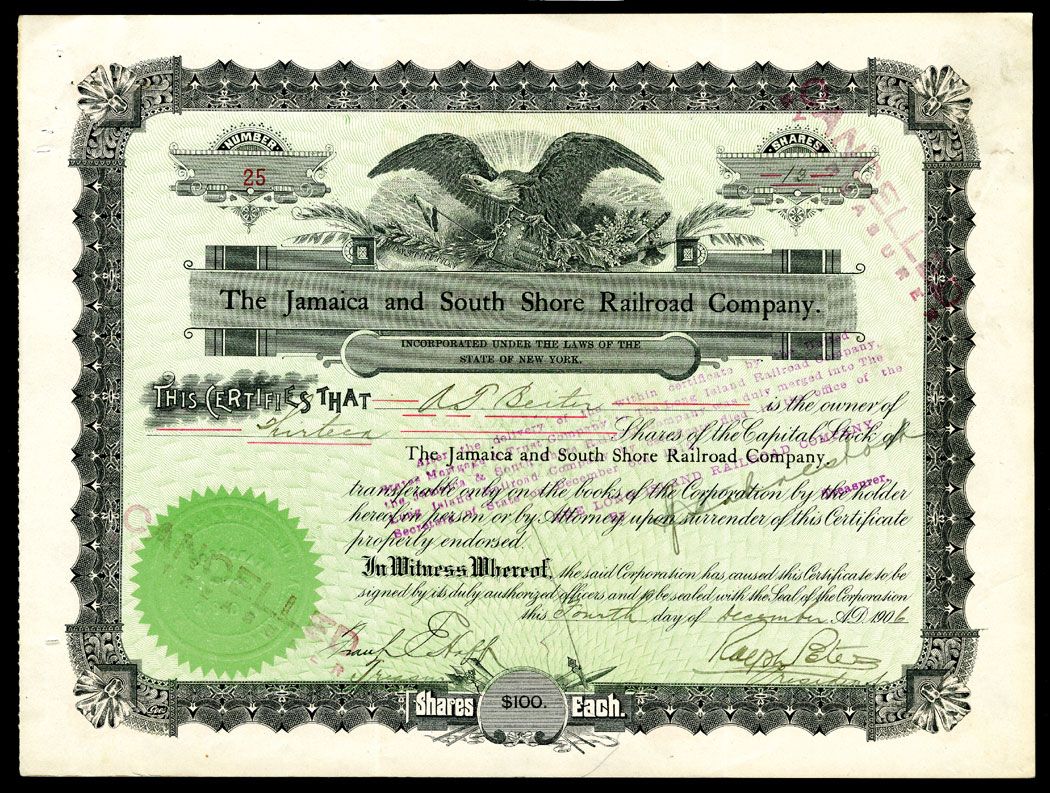 NUMBER
25
SHARES
13
The Jamaica and South Shore Railroad Company.
INCORPORATED UNDER THE LAWS OF THE
STATE OF NEW YORK.
THIS CERTIFIES THAT
is the owner of
Thirteen Shares of the Capital Stock of
The Jamaica and South Shore Railroad Company
transferable only on the books of the Corporation by the holder
hereof in person or by Attorney upon surrender of this Certificate
properly endorsed.
In Witness Whereof, the said Corporation has caused this Certificate to be
signed by its duly authorized officers and to be sealed with the Seal of the Corporation
this Fourth day of December A.D. 1906
Ralph Peters
President
Shares $100. Each.
After the delivery of the within certificate by
the Long Island Railroad Company,
was duly merged into The
Long Island Railroad Company
office of the
Secretary of State
December
THE LONG ISLAND RAILROAD COMPANY
BY
Treasurer.
CANCELLED
CANCELLED